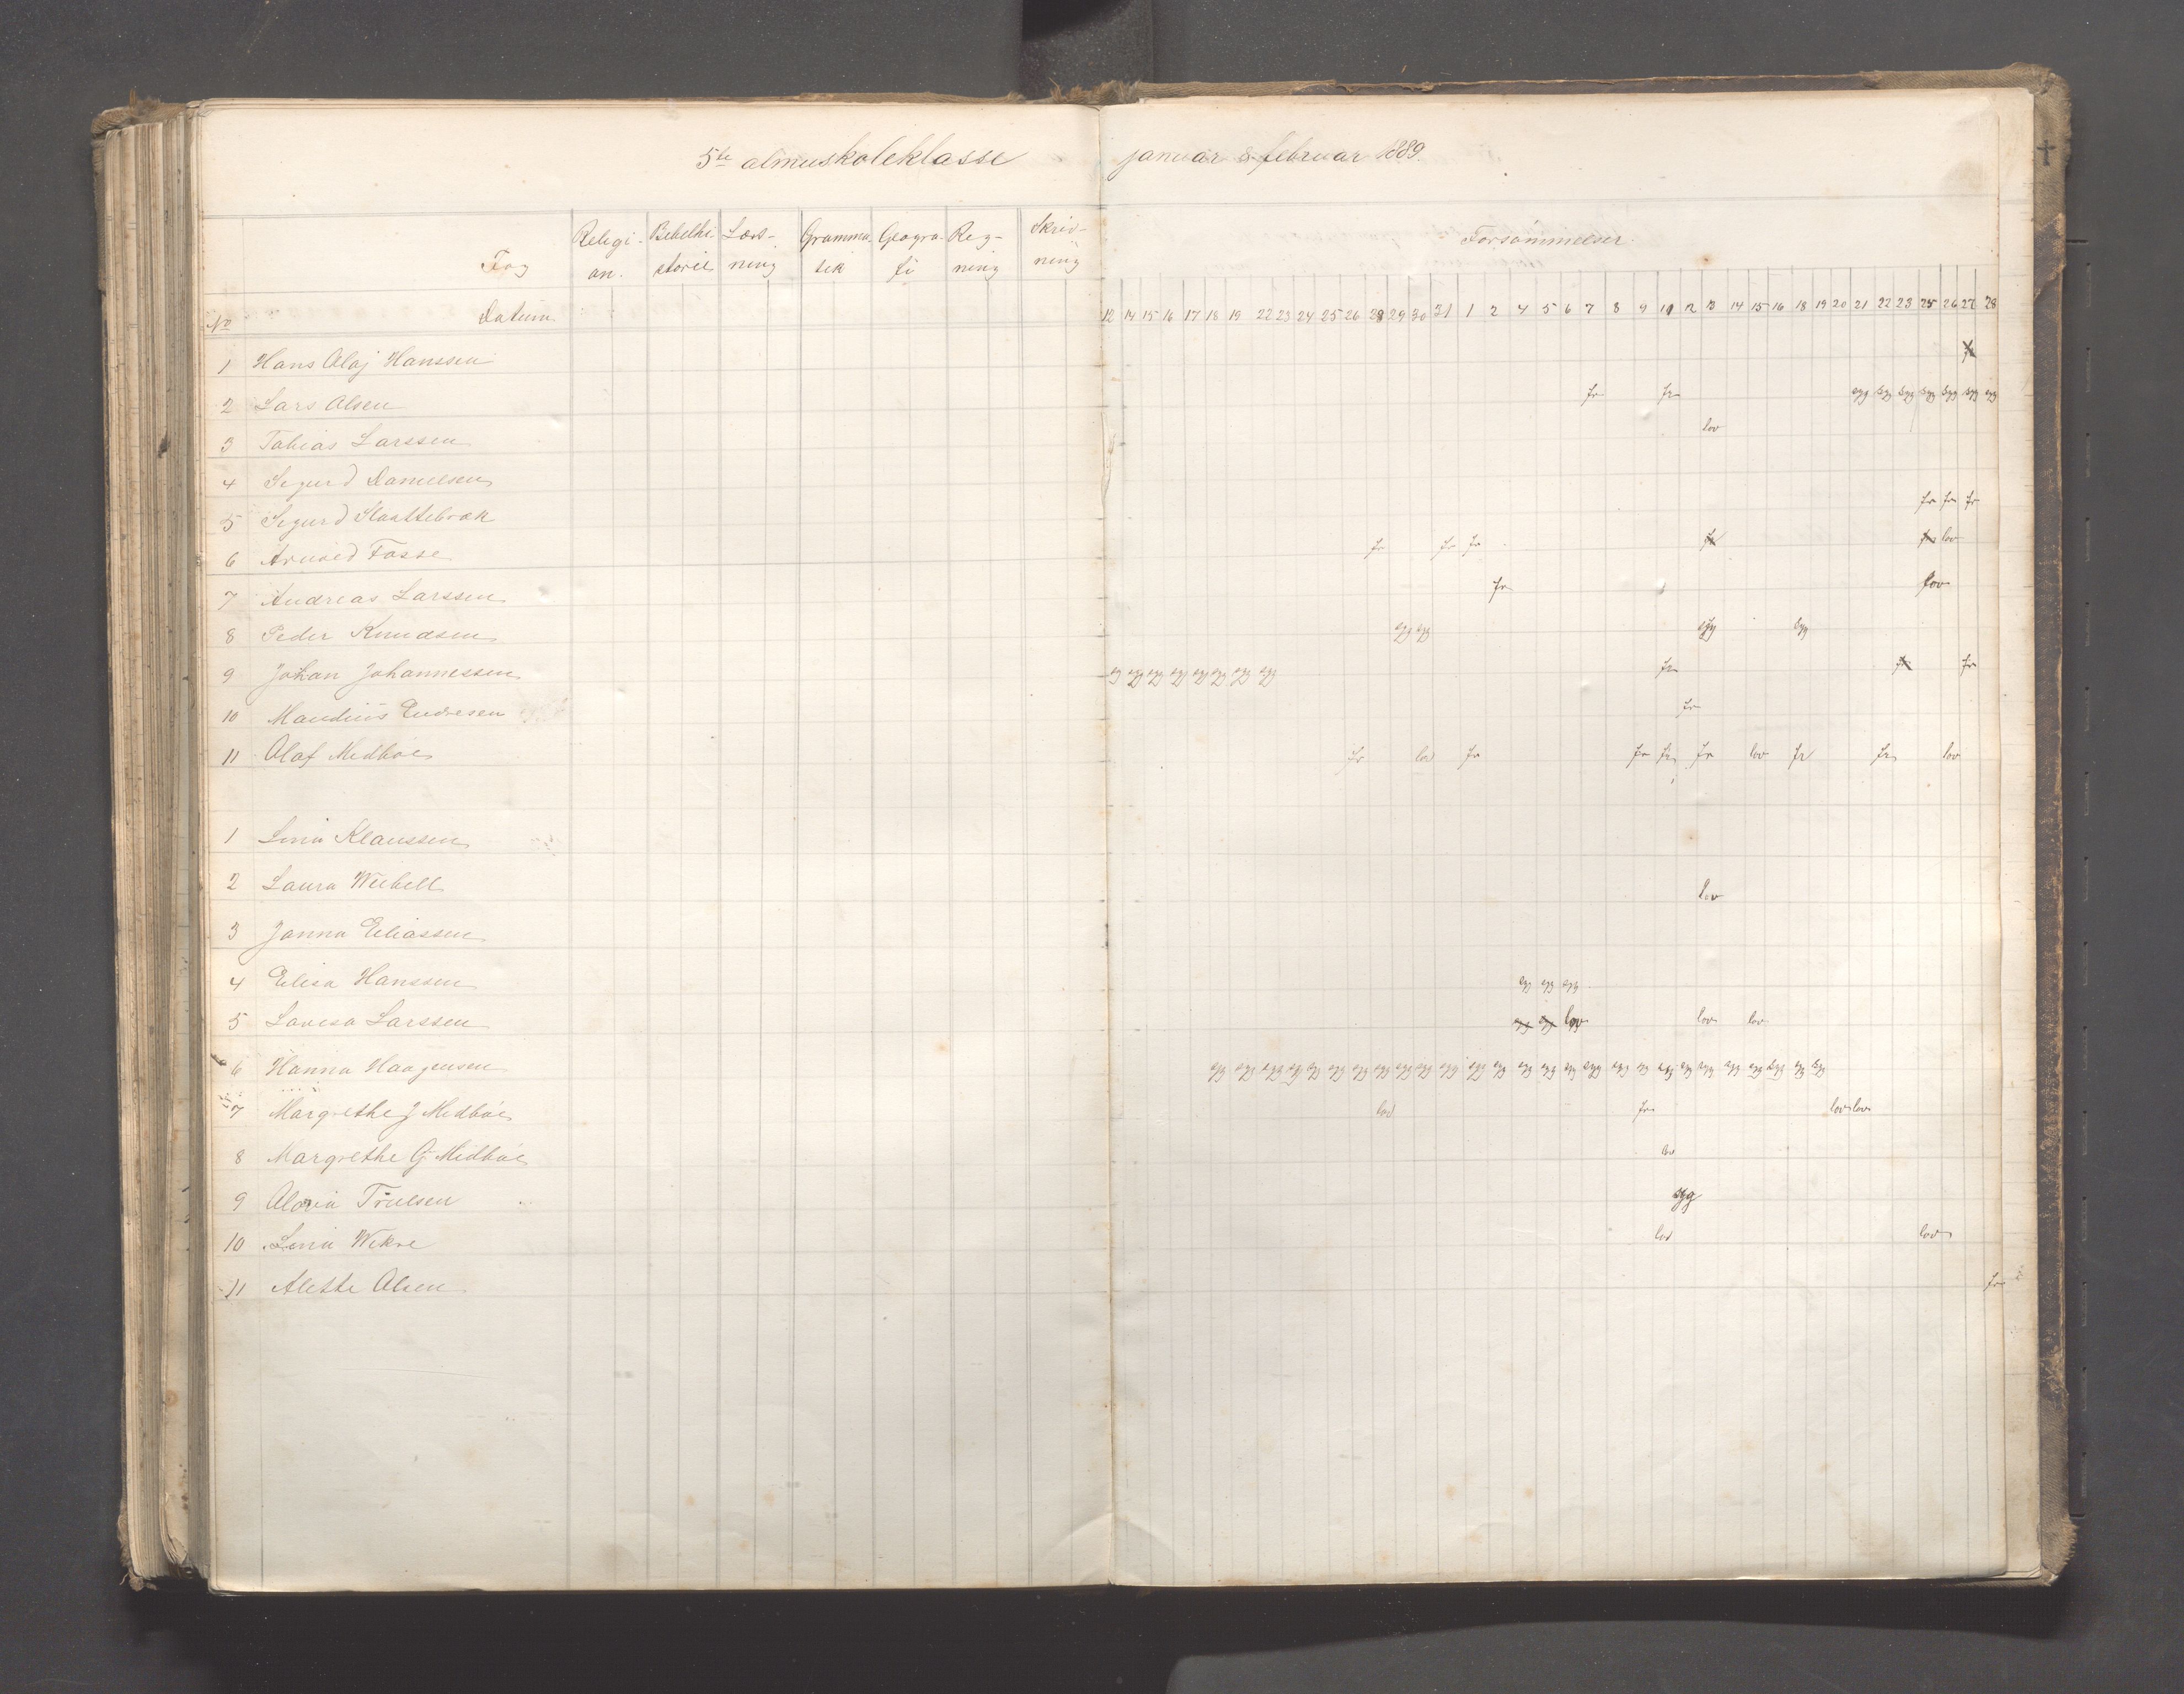 5te almuskoleklasse januar & februar 1889.
Fag Religi-on. Bibelhi-storie Læs-ning Gramma-tik Geogra-fi Reg-ning Skriv-ning Forsömmelser.
No Datum. 12 14 15 16 17 18 19 22 23 24 25 26 28 29 30 31 1 2 4 5 6 7 8 9 11 12 13 14 15 16 18 19 20 21 22 23 25 26 27 28
1 Hans Olaj Hanssen
2 Lars Olsen fr fr syg syg syg syg syg syg syg
3 Tobias Larssen lov
4 Sigurd Danielsen
5 Sigurd Slaattebræk fr fr fr
6 Arnold Fosse fr fr fr fr fr lov
7 Andreas Larssen fr lov
8 Peder Knudsen syg syg syg syg
9 Johan Johannessen syg syg syg syg syg syg syg syg fr fr fr
10 Mandius Endresen fr
11 Olaf Medbøe fr lov fr fr fr fr lov fr fr lov
1 Lina Klaussen
2 Laura Wiebell lov
3 Janna Eliassen
4 Elisa Hanssen syg syg syg
5 Lovisa Larssen syg syg lov lov lov
6 Hanna Haagensen syg syg syg syg syg syg syg syg syg syg syg syg syg syg syg syg syg syg syg syg syg syg syg syg syg syg syg
7 Margrethe J Medbøe lov fr lov lov
8 Margrethe G Medbøe lov
9 Olovia Truelsen syg
10 Lina Wikre lov lov
11 Alette Olsen fr